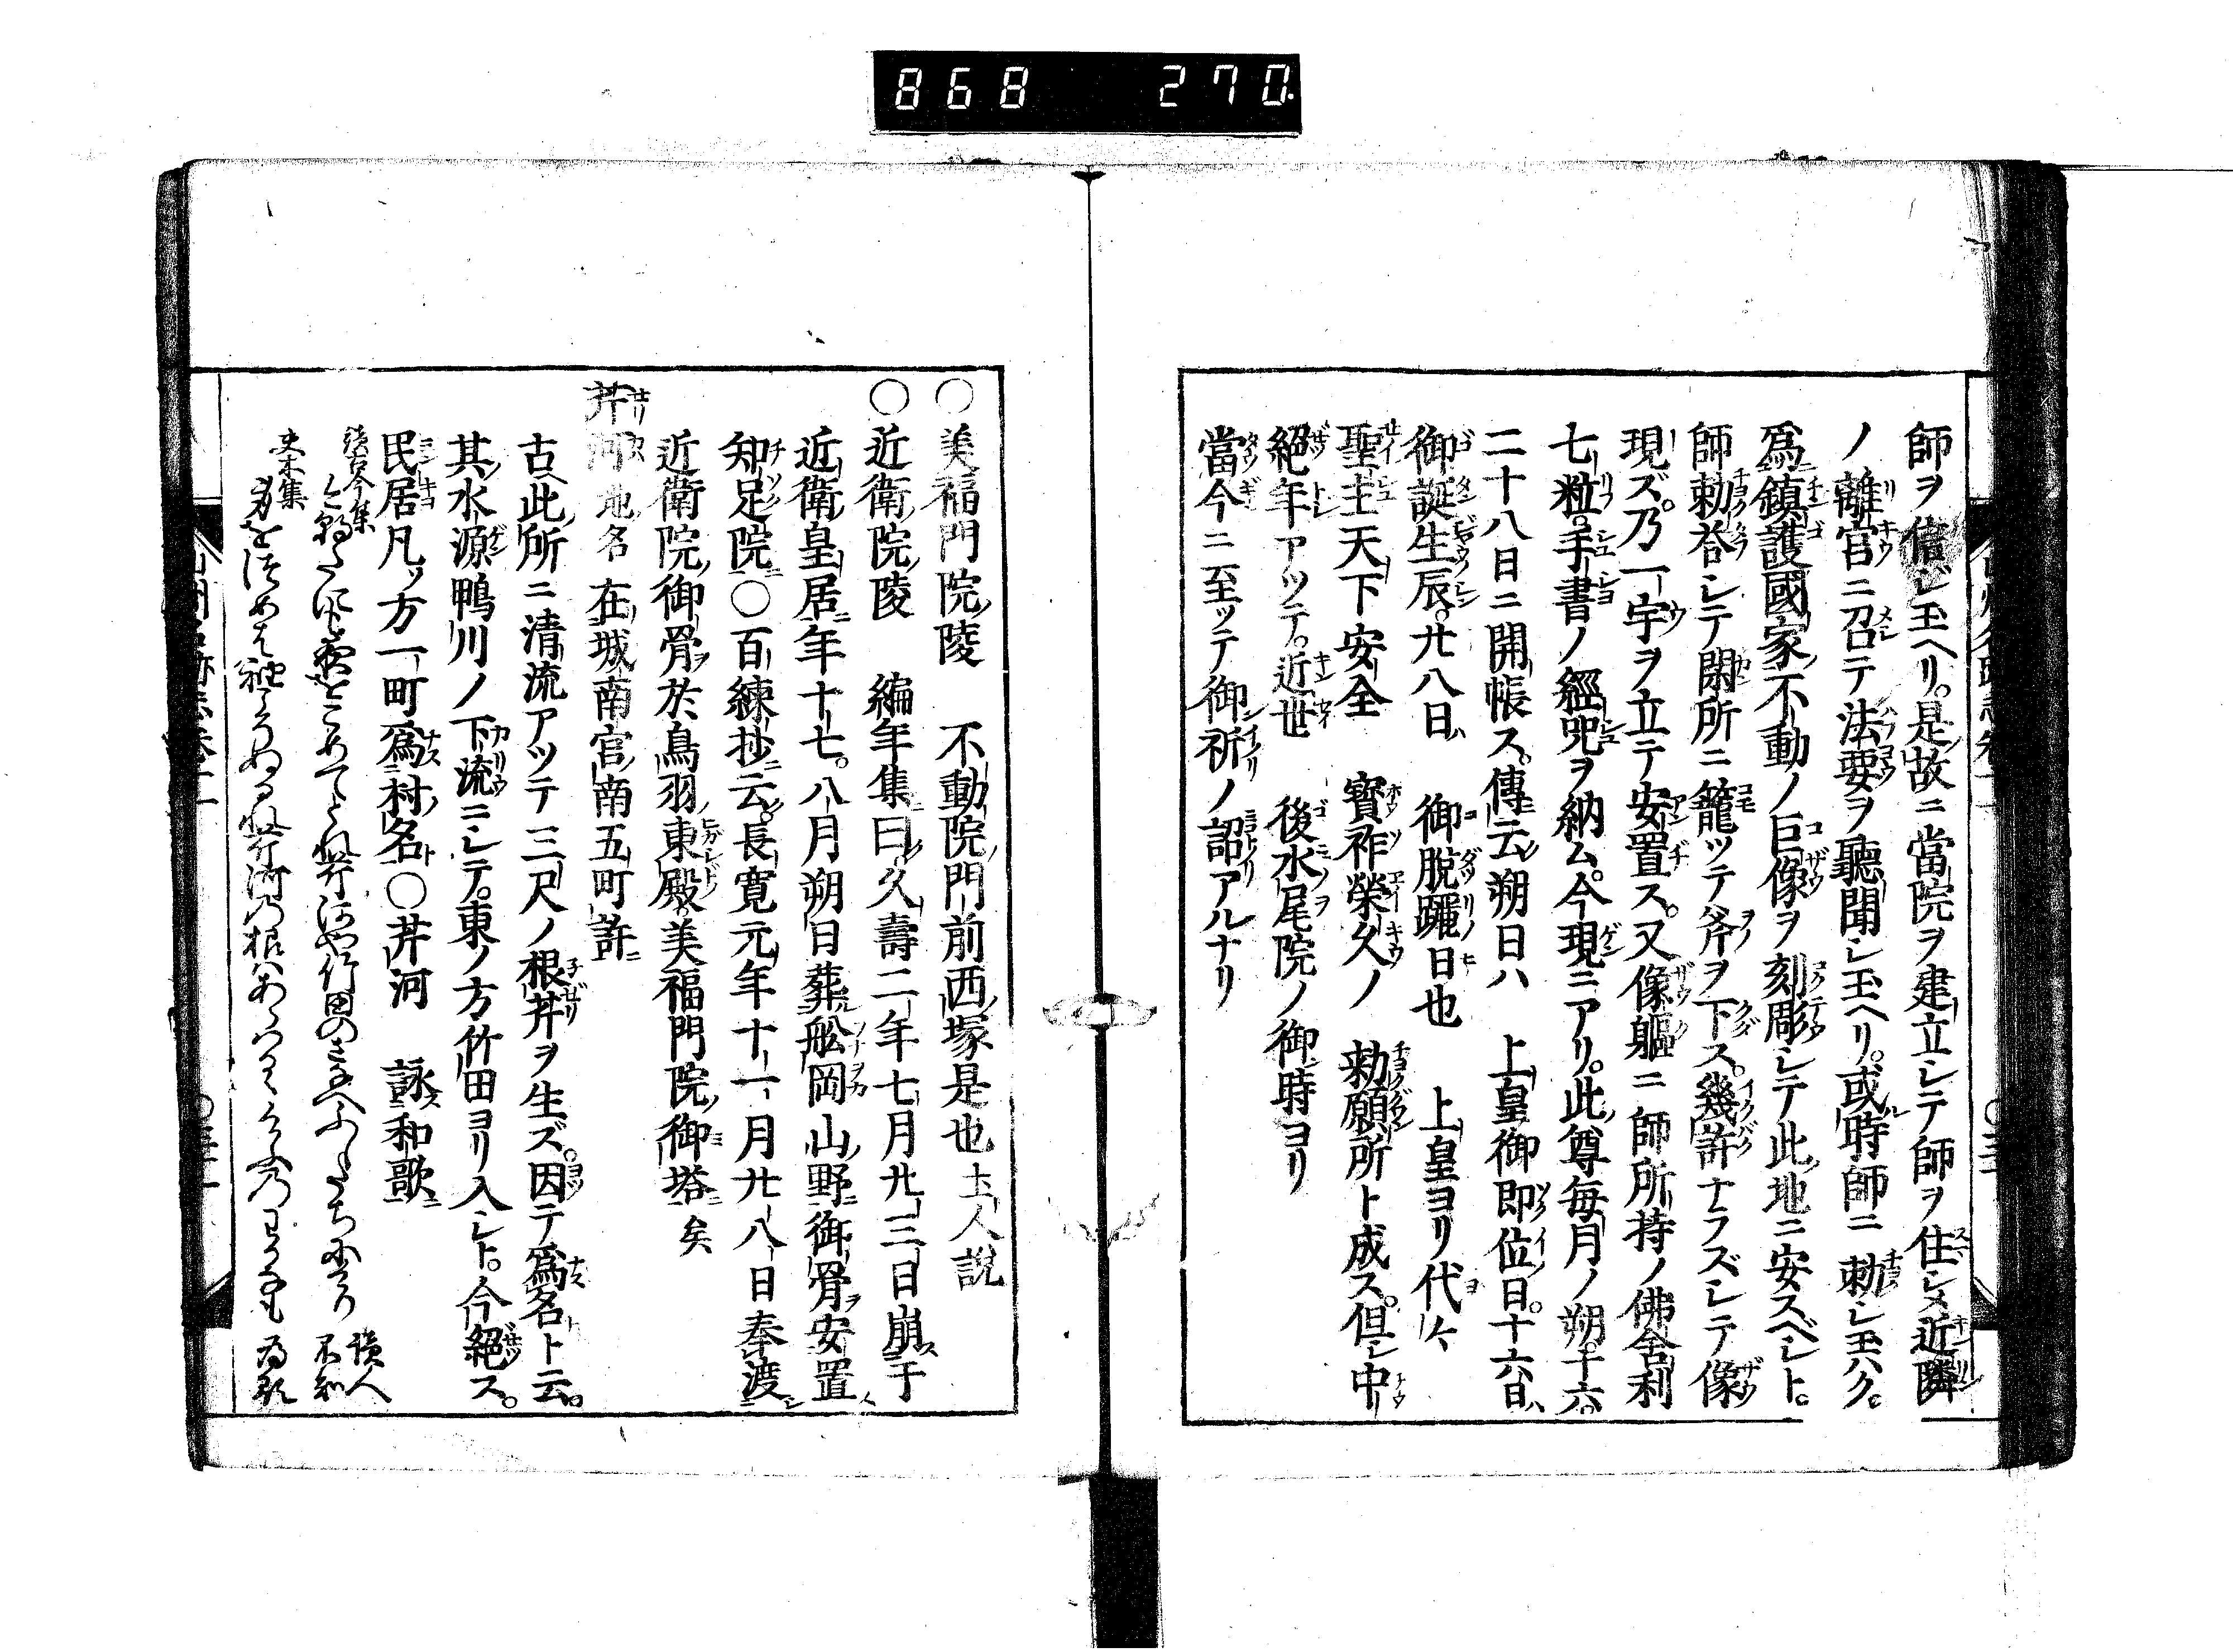 868 270
師ヲ信ジ玉ヘリ。是故ニ當院ヲ建立シテ師ヲ住シメ近隣
ノ離宮ニ召テ法要ヲ聽聞シ玉ヘリ。或時師ニ勅シ玉ハク。
爲鎮護國家不動ノ巨像ヲ刻彫シテ此地ニ安スベシト。
師勅答シテ閑所ニ籠ッテ斧ヲ下ス。幾許ナラズシテ像
現ズ。乃一宇ヲ立テ安置ス。又像軀ニ師所持ノ佛舎利
七粒。手書ノ經呪ヲ納ム。今現ニアリ。此尊毎月ノ朔。十六。
二十八日ニ開帳ス。傳云朔日ハ 上皇御即位日。十六日ハ
御誕生辰。廿八日ハ 御脱躧日也 上皇ヨリ代々
聖主天下安全 寳祚榮久ノ 勅願所ト成ス。但シ中
絶年アッテ。近世 後水尾院ノ御時ヨリ
當今ニ至ッテ御祈ノ詔アルナリ
○美福門院陵 不動院門前西塚是也土人説
○近衛院陵 編年集曰久壽二年七月廿三日崩于
近衛皇居年十七。八月朔日葬舩岡山野御骨安置
知足院○百練抄云。長寛元年十一月廿八日奉渡
近衛院御骨於鳥羽東殿美福門院御塔矣
芹河 地名 在城南宮南五町許
古此所ニ清流アッテ三尺ノ根芹ヲ生ズ。因テ爲名ト云。
其水源鴨川ノ下流ニシテ。東ノ方竹田ヨリ入シト。今絶ス。
民居凡ッ方一町爲村名○芹河 詠和歌
續古今集
讀人不知
夫木集
爲家